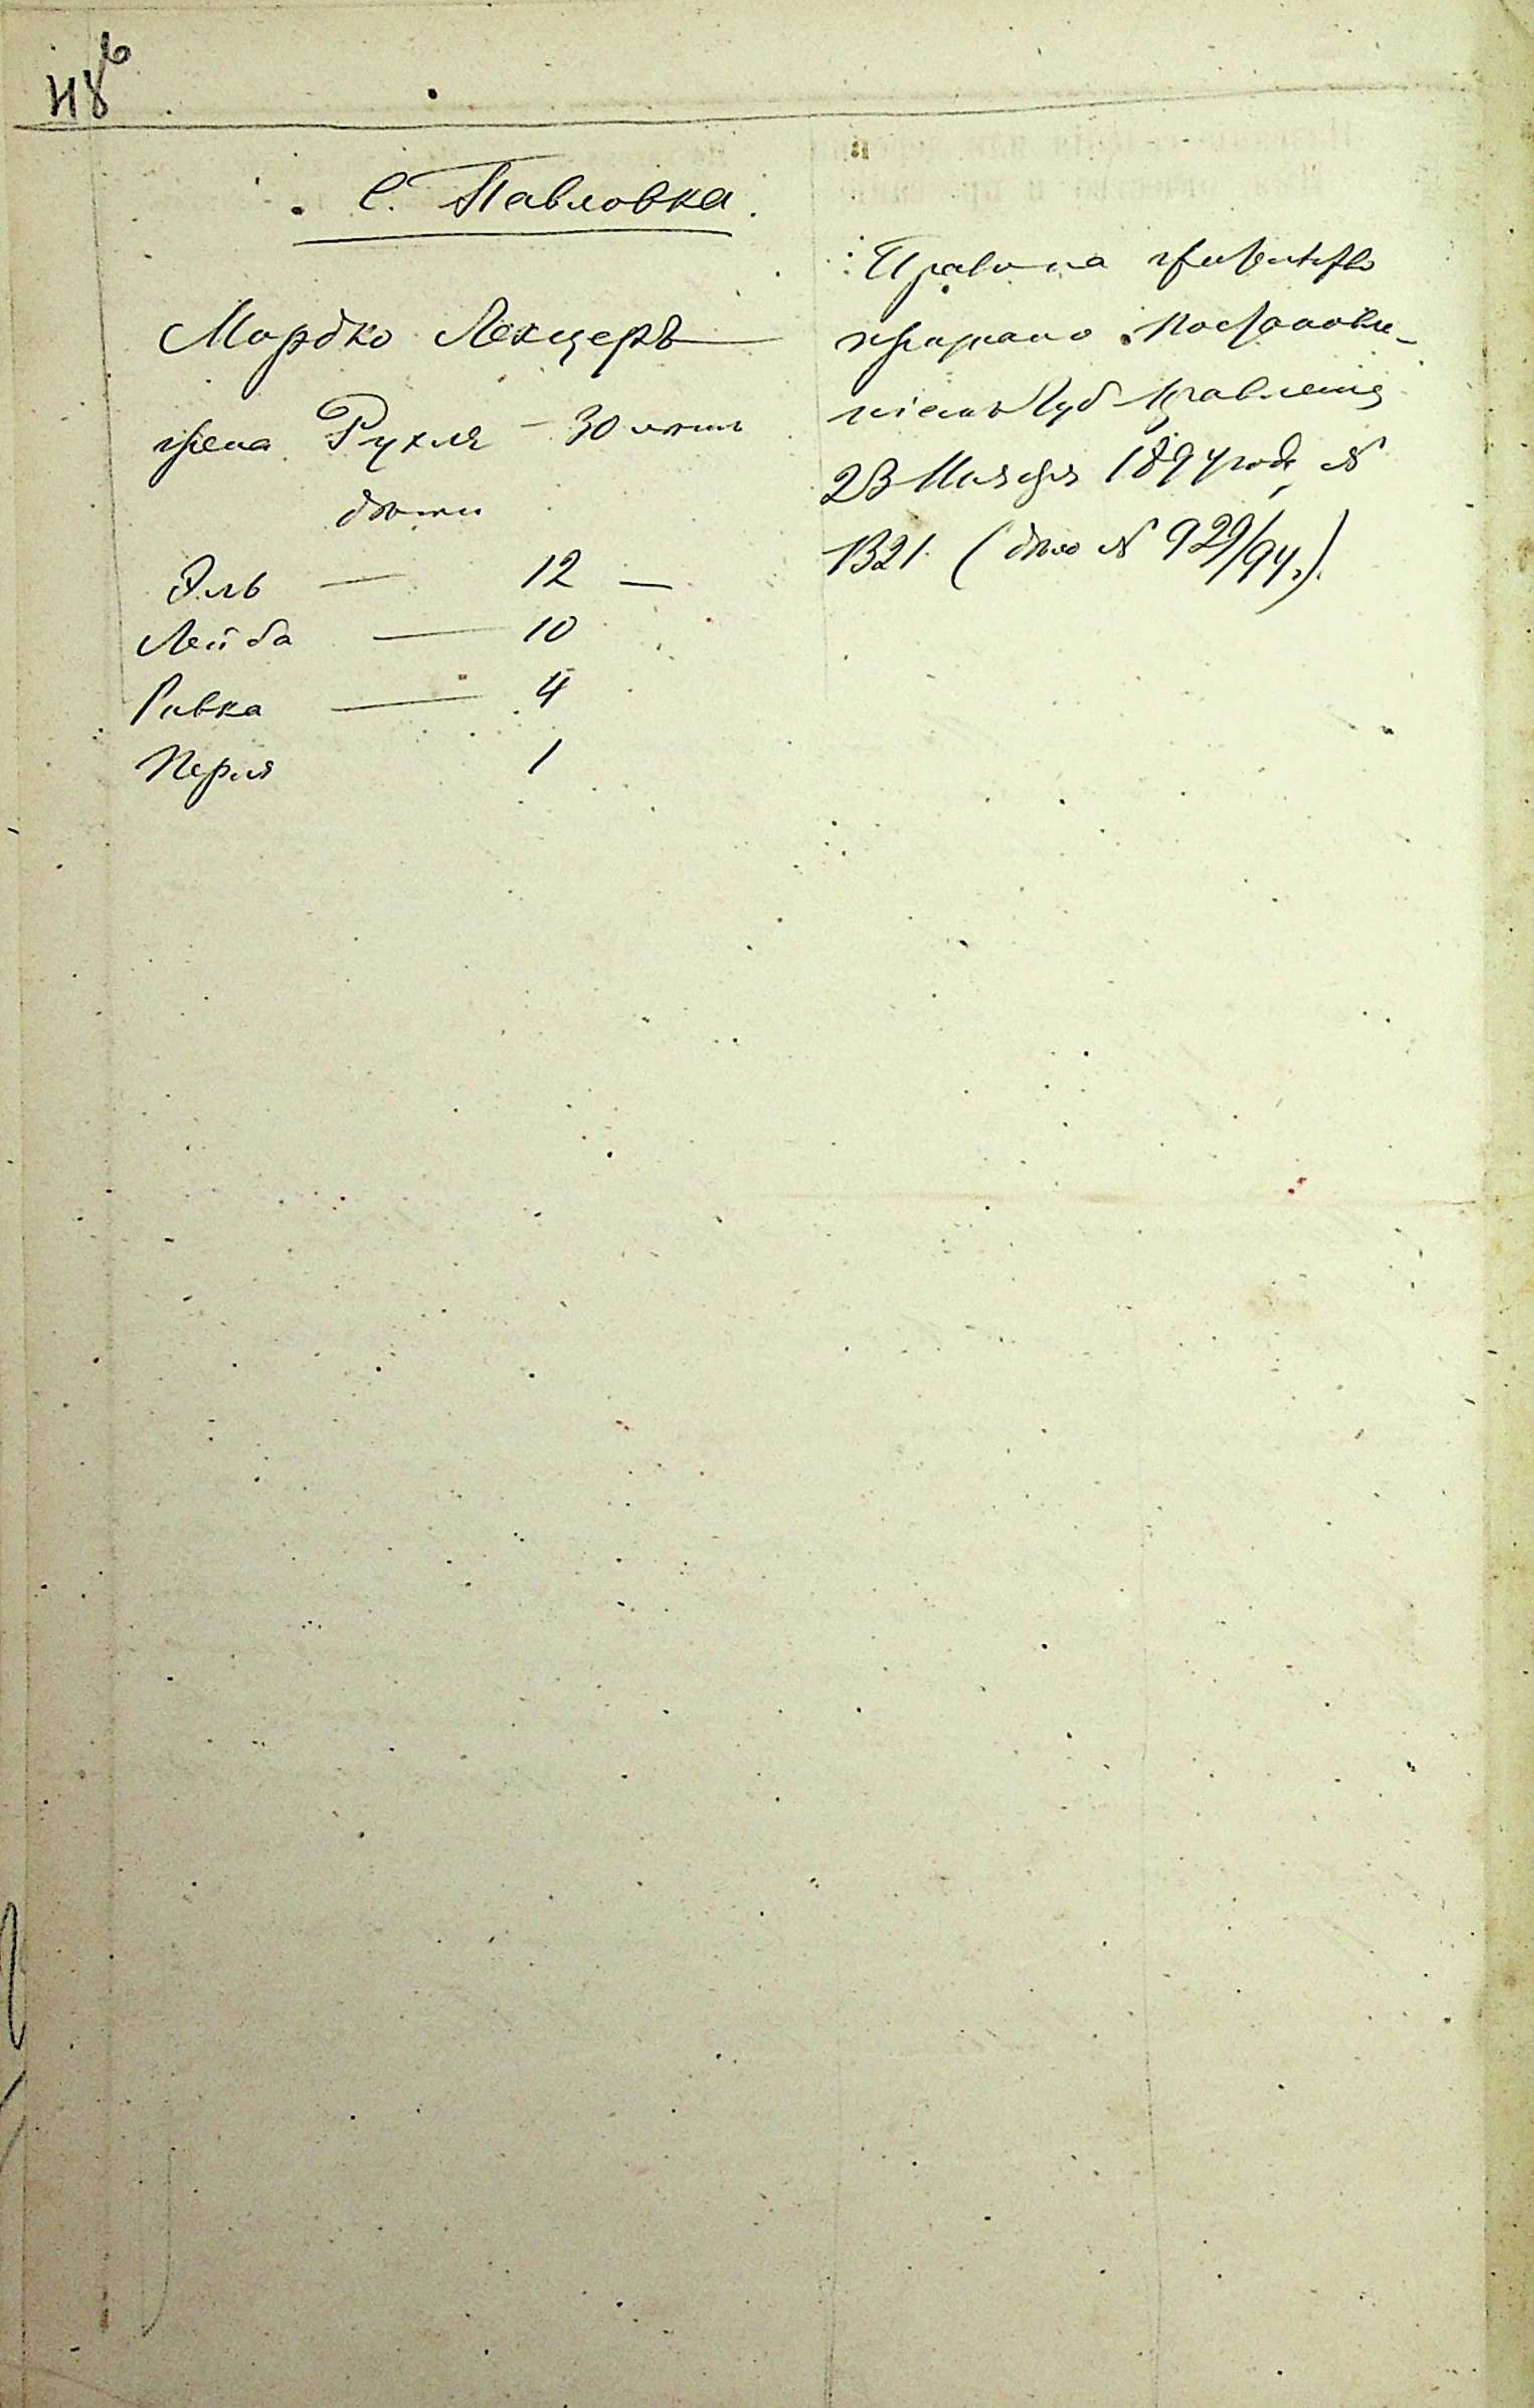 48 б
С. Павловка.
Мордко Лехцеръ
жена Рухля - 30 летъ
дѣти
Эль — 12 —
Лейба — 10
Ривка — 4
Перля 1
Право на жительство
признано постановле-
ніемъ Губ Правленія
23 Ноября 1894 года, №
1321. (дѣло № 929/94 г.).